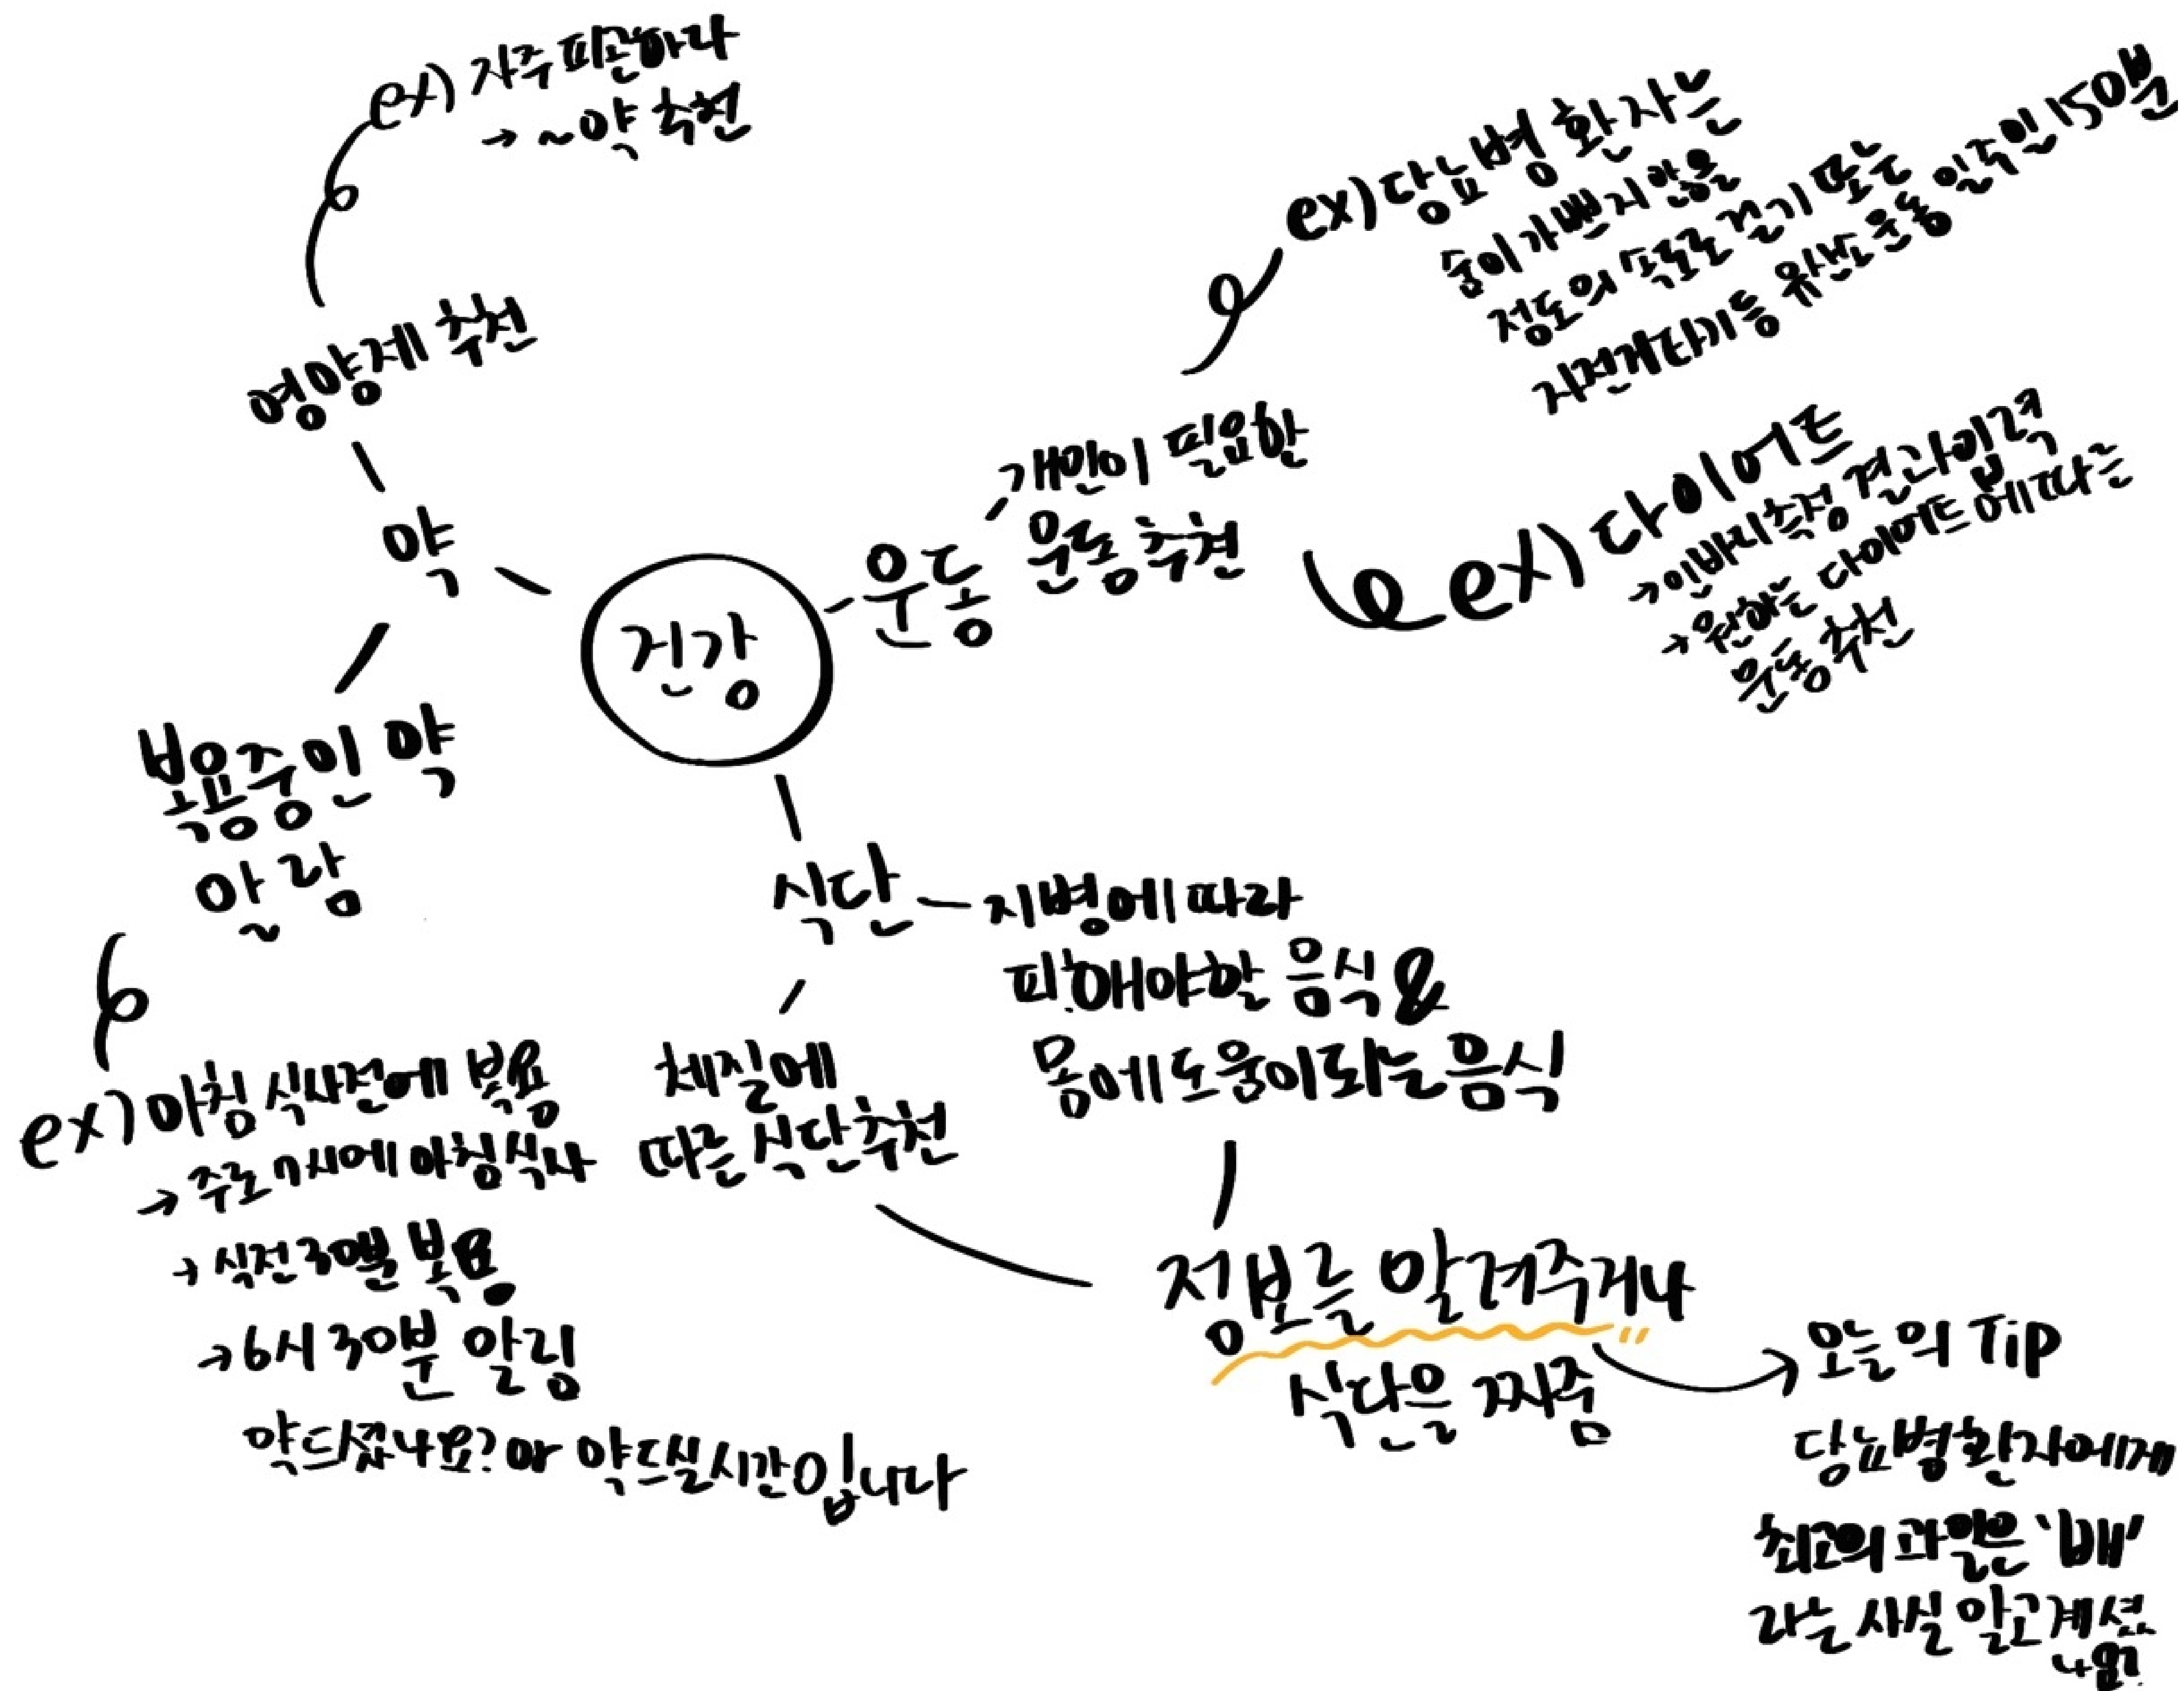 ex) 자주 피곤하다
→ ~약 추천
영양제 추천
약
복용중인 약
알람
ex) 아침 식사전에 복용
→ 주로 7시에 아침식사
→ 식전 30분 복용
→ 6시 30분 알림
약드셨나요? or 약드실시간입니다
건강
운동
개인이 필요한
운동 추천
ex) 당뇨병 환자는
숨이 가쁘지 않을
정도의 속도로 걷기 또는
자전거타기등 유산소운동 일주일 150분
ex) 다이어트
→ 인바디측정 결과입력
→ 원하는 다이어트에 따른
운동추천
식단
지병에 따라
피해야할 음식 &
몸에 도움이되는 음식
체질에
따른 식단추천
정보를 알려주거나
식단을 짜줌
→ 오늘의 Tip
당뇨병환자에게
최고의 과일은 '배'
라는 사실 알고계셨
나요?